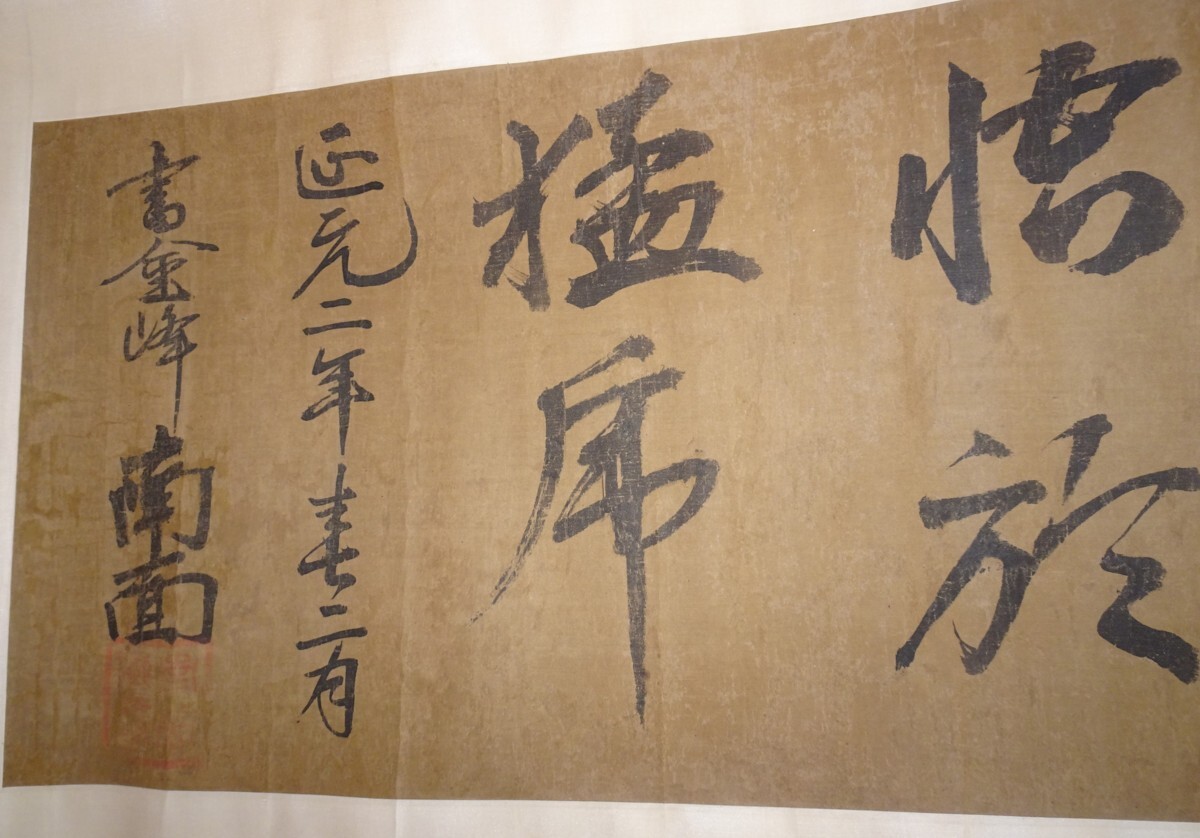 於
猛虎
延元二年春二月
書金峰南面